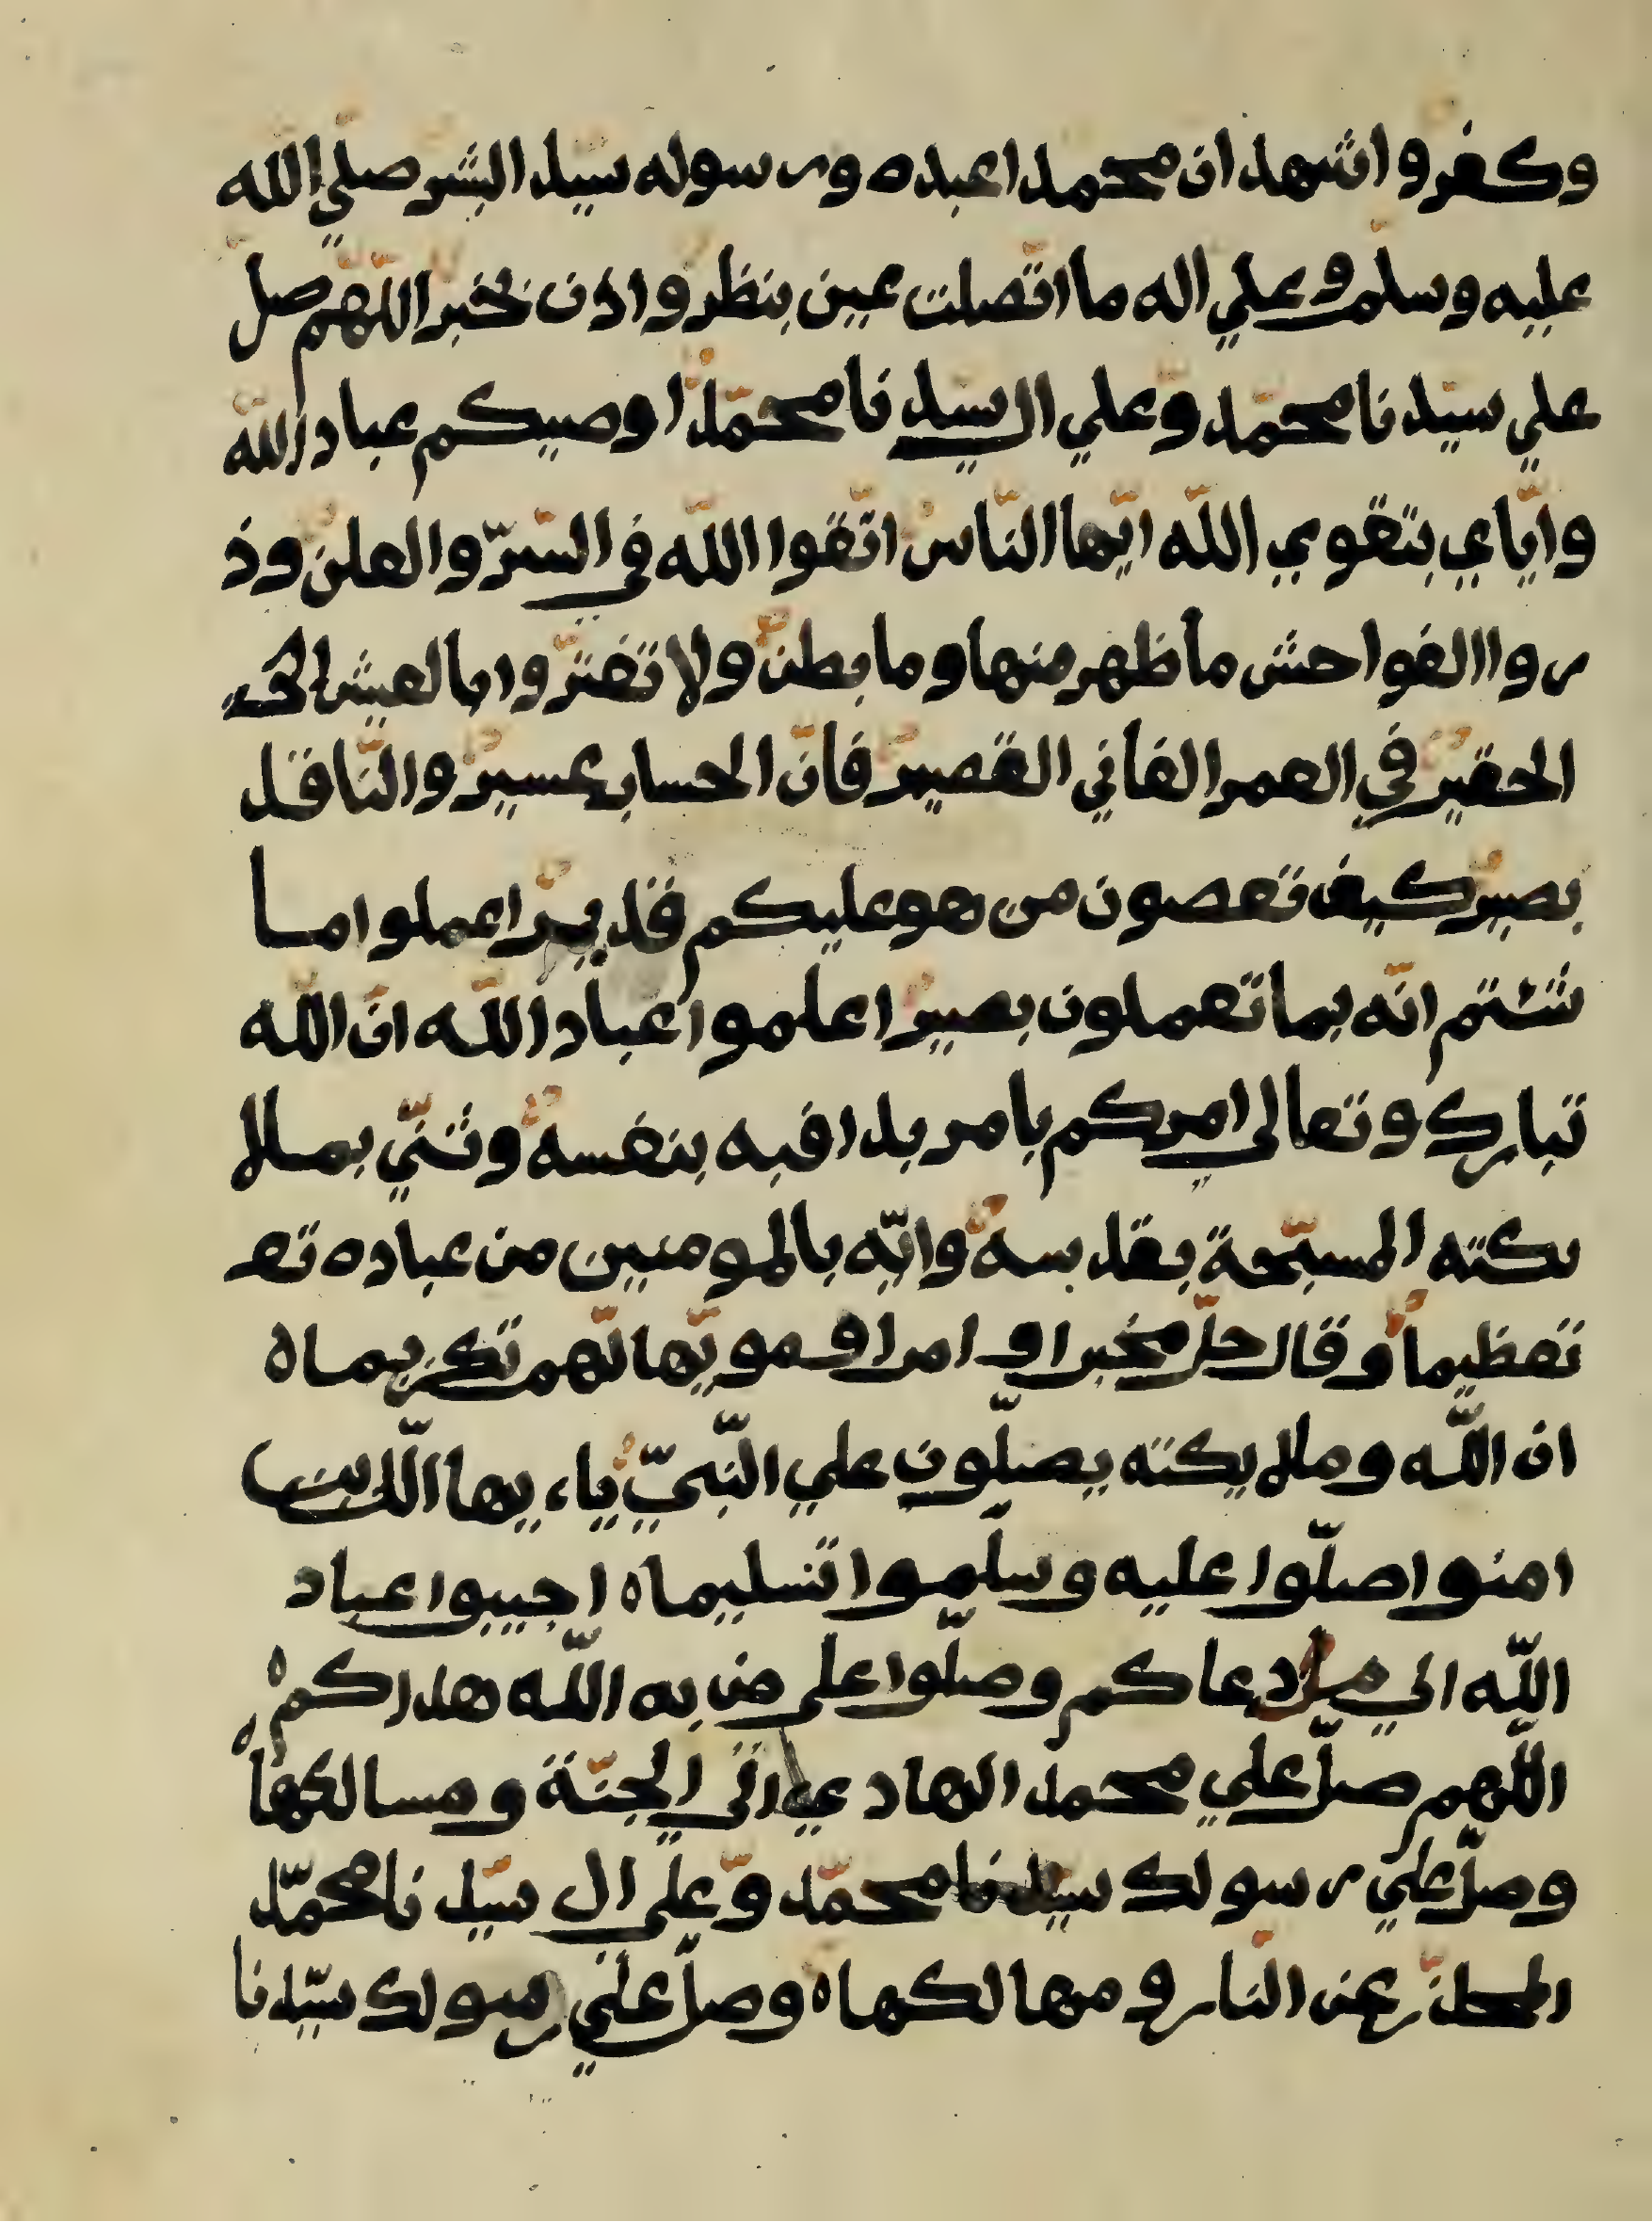 وكفر واشهد ان محمدا عبده ورسوله سيد البشر صلي الله
عليه وسلم وعلي اله ما اتّصلت عين بنظر واذن بخبر اللّهمّ صل
علي سيّدنا محمّد وعلي ال سيّدنا محمّد اوصيكم عباد الله
وايّاي بتقوي اللّه ايّها النّاس اتّقوا اللّه في السّرّ والعلن وذ
روا الفواحش ما ظهر منها وما بطن ولا تغترّوا بالعيش الحـ
الحقير في العمر الفاني القصير فانّ الحساب عسير والنّاقد
بصير كيف تعصون من هو عليكم قدير اعملوا ما
شئتم انّه بما تعملون بصير اعلموا عباد اللّه انّ اللّه
تبارك وتعالى امركم بامر بدا فيه بنفسه وثنّي بملا
ئكته المسبّحة بقدسه وايّه بالمومنين من عباده تعـ
تعظيما وقال جلّ مخبرا و امرا لهم تكريما ه
ان اللّه وملايكته يصلّون علي النّبيّ ياءيها الّذين
امنوا صلّوا عليه وسلّموا تسليما ه اجيبوا عباد
اللّه الي ما دعاكم وصلّوا على من به اللّه هداكم ه
اللّهم صلّ علي محمد الهادي الى الجنّة ومسالكها ه
وصلّ علي رسولك سيّدنا محمّد وّعلي ال سيّدنا محمّد
المحذّر عن النّار و مهالكها ه وصلّ علي رسولك سيّدنا